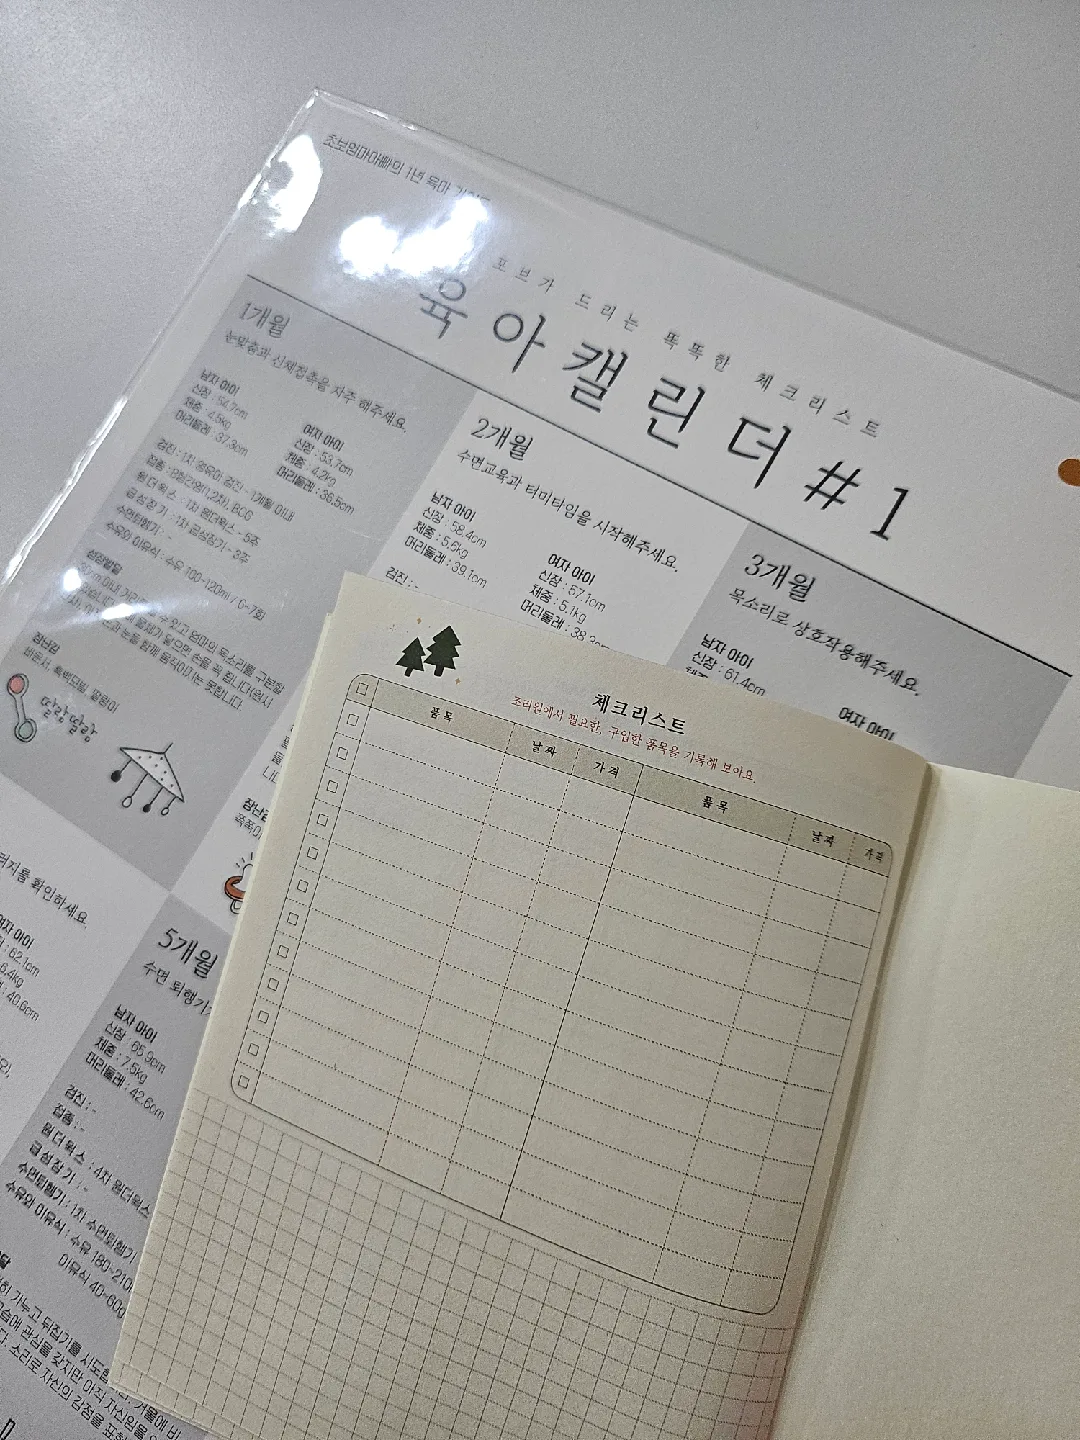 초보엄마아빠의 1년 육아
포브가 드리는 똑똑한 체크리스트
육아캘린더#1
1개월
눈맞춤과 신체접촉을 자주 해주세요.
남자 아이
신장 : 54.7cm
체중 : 4.5kg
머리둘레 : 37.3cm
여자 아이
신장 : 53.7cm
체중 : 4.2kg
머리둘레 : 36.5cm
검진 : 1차 영유아 검진 -
접종 : B형간염(1,2차), BCG
원더윅스 : 1차 원더윅스 - 5주
급성장기 : 1차 급성장기 - 3주
수면퇴행기 : -
수유와 이유식 : 수유 100-120ml / 6-7회
성장발달
장난감
바운서, 흑백모빌, 딸랑이
딸랑딸랑
2개월
수면교육과 터미타임을 시작해주세요.
남자 아이
신장 : 58.4cm
체중 : 5.6kg
머리둘레 : 39.1cm
여자 아이
신장 : 57.1cm
체중 : 5.1kg
머리둘레 : 38.3cm
검진 : -
3개월
목소리로 상호작용해주세요.
남자 아이
신장 : 61.4cm
여자 아이
확인하세요.
여자 아이
62.1cm
6.4kg
40.6cm
5개월
수면 퇴행기
남자 아이
신장 : 65.9cm
체중 : 7.5kg
머리둘레 : 42.6cm
검진 : -
접종 : -
원더윅스 : 4차 원더윅스
급성장기 : -
수면퇴행기 : 1차 수면퇴행기
수유와 이유식 : 수유 180-210
이유식 40-60g
가누고 뒤집기를
관심을 갖지만 아직
소리로 자신의 감정을
체크리스트
조리원에서 필요한, 구입한 품목을 기록해 보아요.
품목 날짜 가격 품목 날짜 가격